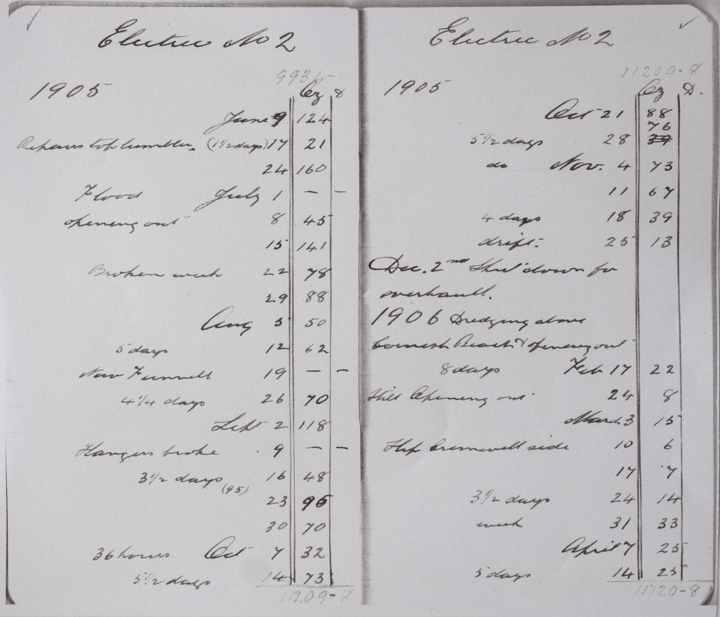 Electric No 2
9934-
1905
Oz D
June 9 124
Repairs top tumbler. (1½ days) 17 21
24 160
Flood July 1 – –
opening out 8 45
15 141
Broken week 22 78
29 88
Aug 5 50
5 days 12 62
New Funnell 19 – –
4¼ days 26 70
Sept 2 118
Hangers broke 9 – –
3½ days 16 48
(95)
23 96
30 70
36 hours Oct 7 32
5½ days 14 73
11209-8
Electric No 2
11209-8
1905
Oz D.
Oct 21 88
76
5½ days 28 39
do Nov. 4 73
11 67
4 days 18 39
drift- 25 13
Dec. 2nd Shut down for
overhaull.
1906 Dredging above
Cornish Beach & opening out
8 days Feb 17 22
Still Opening out 24 8
March 3 15
Slip Cromwell side 10 6
17 7
3½ days 24 14
week 31 33
April 7 25
5 days 14 25
11720-8